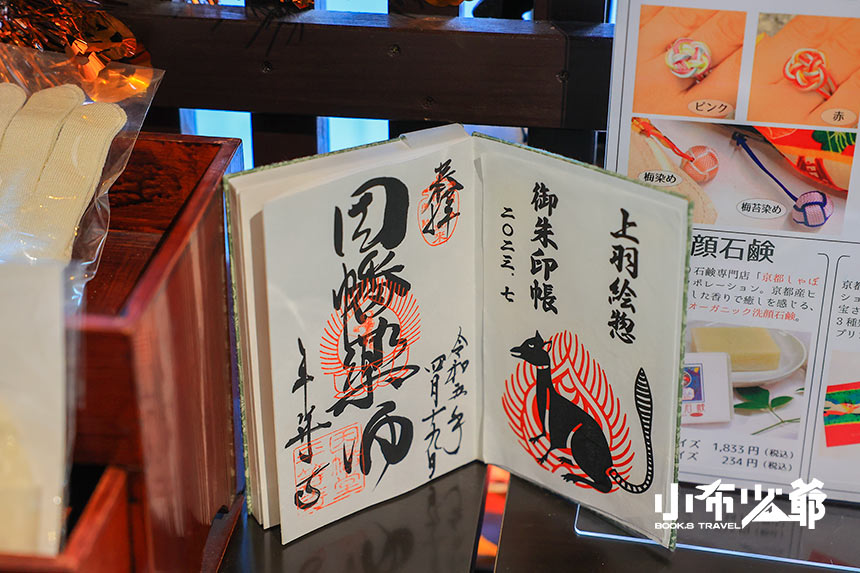 奉拝
因幡薬師
平等寺
令和五年
四月十九日
御朱印帳
二〇二三、七
上羽絵惣
ピンク
赤
梅染め
梅苔染め
顔石鹸
石鹸専門店「京都しゃぼ
ポレーション。京都産ヒ
した香りで癒しを感じる、
オーガニック洗顔石鹸。
イズ 1,833円（税込）
イズ 234円（税込）
小布少爺
BOOK.S TRAVEL